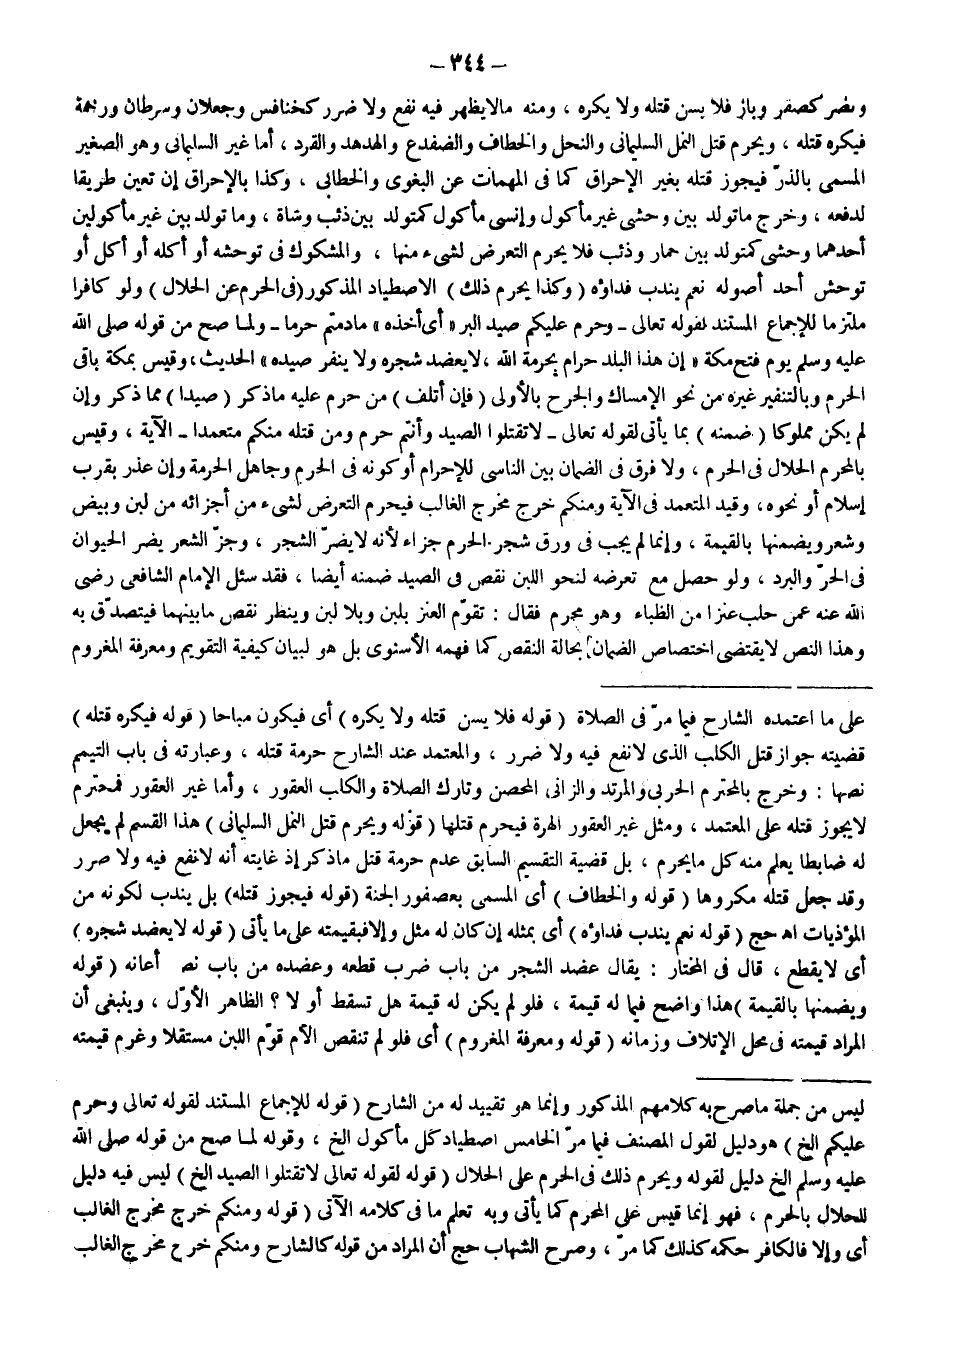 – ٣٤٤ –
وضر كصقر وباز فلا يسن قتله ولا يكره ، ومنه مالايظهر فيه نفع ولا ضرر كخنافس وجعلان وسرطان ورخمة
فيكره قتله ، ويحرم قتل النمل السليمانى والنحل والخطاف والضفدع والهدهد والقرد ، أما غير السليمانى وهو الصغير
المسمى بالذرّ فيجوز قتله بغير الإحراق كما فى المهمات عن البغوى والخطابى ، وكذا بالإحراق إن تعين طريقا
لدفعه ، وخرج ماتولد بين وحشى غير مأكول وإنسى مأكول كمتولد بين ذئب وشاة ، وما تولد بين غير مأكولين
أحدهما وحشى كمتولد بين حمار وذئب فلا يحرم التعرض لشىء منها ، والمشكوك فى توحشه أو أكله أو أكل أو
توحش أحد أصوله نعم يندب فداؤه ( وكذا يحرم ذلك ) الاصطياد المذكور (فى الحرم عن الحلال ) ولو كافرا
ملتزما للإجماع المستند لقوله تعالى ـ وحرم عليكم صيد البر « أى أخذه » مادمتم حرما ـ ولما صح من قوله صلى الله
عليه وسلم يوم فتح مكة « إن هذا البلد حرام بحرمة الله ، لايعضد شجره ولا ينفر صيده » الحديث ، وقيس بمكة باقى
الحرم وبالتنفير غيره من نحو الإمساك والجرح بالأولى ( فإن أتلف ) من حرم عليه ماذكر ( صيدا ) مما ذكر وإن
لم يكن مملوكا ( ضمنه ) بما يأتى لقوله تعالى ـ لاتقتلوا الصيد وأنتم حرم ومن قتله منكم متعمدا ـ الآية ، وقيس
بالمحرم الحلال فى الحرم ، ولا فرق فى الضمان بين الناسى للإحرام أو كونه فى الحرم وجاهل الحرمة وإن عذر بقرب
إسلام أو نحوه ، وقيد المتعمد فى الآية ومنكم خرج مخرج الغالب فيحرم التعرض لشىء من أجزائه من لبن وبيض
وشعر ويضمنها بالقيمة ، وإنما لم يجب فى ورق شجر الحرم جزاء لأنه لايضرّ الشجر ، وجزّ الشعر يضر الحيوان
فى الحرّ والبرد ، ولو حصل مع تعرضه لنحو اللبن نقص فى الصيد ضمنه أيضا ، فقد سئل الإمام الشافعى رضى
الله عنه عمن حلب عنزا من الظباء وهو محرم فقال : تقوّم العنز بلبن وبلا لبن وينظر نقص مابينهما فيتصدّق به
وهذا النص لايقتضى اختصاص الضمان بحالة النقص كما فهمه الأسنوى بل هو لبيان كيفية التقويم ومعرفة المغروم
على ما اعتمده الشارح فيما مرّ فى الصلاة ( قوله فلا يسن قتله ولا يكره ) أى فيكون مباحا ( قوله فيكره قتله )
قضيته جواز قتل الكلب الذى لانفع فيه ولا ضرر ، والمعتمد عند الشارح حرمة قتله ، وعبارته فى باب التيمم
نصها : وخرج بالمحترم الحربى والمرتد والزانى المحصن وتارك الصلاة والكلب العقور ، وأما غير العقور فمحترم
لايجوز قتله على المعتمد ، ومثل غير العقور الهرة فيحرم قتلها ( قوله ويحرم قتل النمل السليمانى ) هذا القسم لم يجعل
له ضابطا يعلم منه كل مايحرم ، بل قضية التقسيم السابق عدم حرمة قتل ماذكر إذ غايته أنه لانفع فيه ولا ضرر
وقد جعل قتله مكروها ( قوله والخطاف ) أى المسمى بعصفور الجنة (قوله فيجوز قتله) بل يندب لكونه من
المؤذيات اه حج ( قوله نعم يندب فداؤه ) أى بمثله إن كان له مثل وإلا فبقيمته على ما يأتى ( قوله لايعضد شجره )
أى لايقطع ، قال فى المختار : يقال عضد الشجر من باب ضرب قطعه وعضده من باب نصر أعانه ( قوله
ويضمنها بالقيمة ) هذا واضح فيما له قيمة ، فلو لم يكن له قيمة هل تسقط أو لا ؟ الظاهر الأوّل ، وينبغى أن
المراد قيمته فى محل الإتلاف وزمانه ( قوله ومعرفة المغروم ) أى فلو لم تنقص الأم قوّم اللبن مستقلا وغرم قيمته
ليس من جملة ماصرح به كلامهم المذكور وإنما هو تقييد له من الشارح ( قوله للإجماع المستند لقوله تعالى وحرم
عليكم الخ ) هو دليل لقول المصنف فيما مرّ الخامس اصطياد كل مأكول الخ ، وقوله لما صح من قوله صلى الله
عليه وسلم الخ دليل لقوله ويحرم ذلك فى الحرم على الحلال ( قوله لقوله تعالى لاتقتلوا الصيد الخ ) ليس فيه دليل
للحلال بالحرم ، فهو إنما قيس على المحرم كما يأتى وبه تعلم ما فى كلامه الآتى ( قوله ومنكم خرج مخرج الغالب
أى وإلا فالكافر حكمه كذلك كما مرّ ، وصرح الشهاب حج أن المراد من قوله كالشارح ومنكم خرج مخرج الغالب